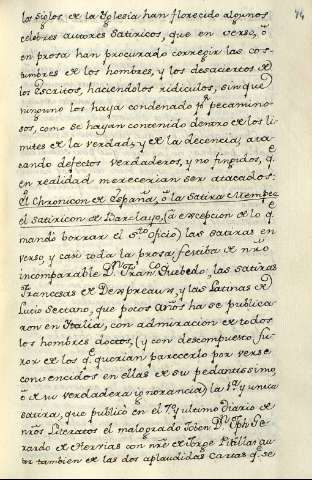 74
los siglos de la Yglesia han florecido algunos
celebres autores Satiricos, que en verso, ò
en prosa han procurado corregir las cos-
tumbres de los hombres, y los desaciertos de
los Escritos, haciendolos ridiculos, sin que
ninguno los haya condenado pr. pecamino-
sos, como se hayan contenido dentro de los li-
mites de la verdad, y de la decencia, ata-
cando defectos verdaderos, y no fingidos, qe.
en realidad merecerian ser atacados:
El Chronicon de España, ò la Satira Menipea
el Satiricon de Barclayo, (à excepcion de lo qe.
mandò borrar el sto. oficio) las satiras en
verso, y casi toda la prosa festiba de nrô
incomparable Dn. Franco. Quebedo, las satiras
Francesas de Despreaux, y las Latinas de
Lucio Sectano, que pocos años ha se publica-
ron en Italia, con admiracion de todos
los hombres doctos, (y con descompuesto fu-
ror de los qe. querian parecerlo por verse
convencidos en ellas de su pedantissimo,
ò de su verdadera ignorancia) la 1a. y unica
satira, que publicò en el 7o. y ultimo diario de
nrôs Literatos el malogrado Joben Dn. Jph Ge-
rardo de Hervias con nrê de Jorge Pitillas
tar tambien de las dos aplaudidas cartas qe. se